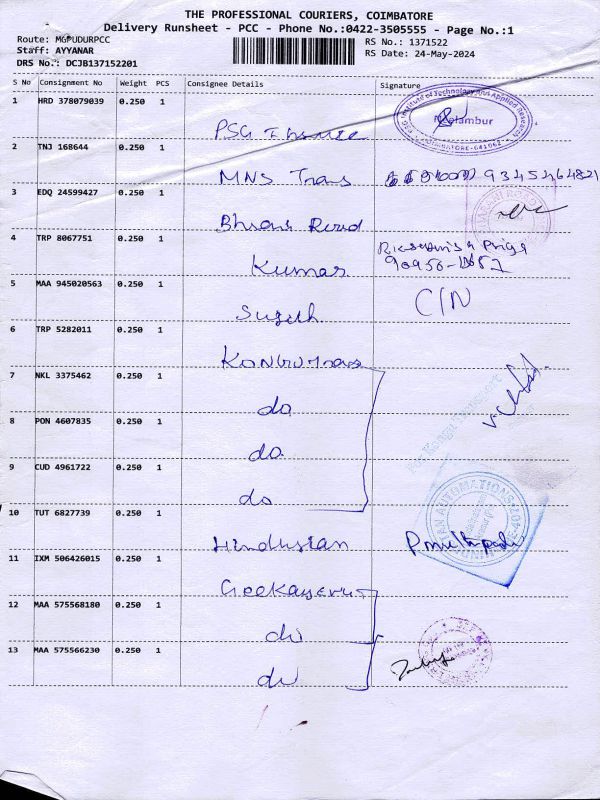 THE PROFESSIONAL COURIERS, COIMBATORE
Delivery Runsheet - PCC - Phone No.:0422-3505555 - Page No.:1
Route: MGPUDURPCC
RS No.: 1371522
Staff: AYYANAR
RS Date: 24-May-2024
DRS No.: DCJB137152201
S No Consignment No Weight PCS Consignee Details Signature
1 HRD 378079039 0.250 1
PSG
Institute of Technology and Applied Research
Neelambur
COIMBATORE-641062
2 TNJ 168644 0.250 1
MNS Trans 9345464821
3 EDQ 24599427 0.250 1
4 TRP 8067751 0.250 1
Kumar
5 MAA 945020563 0.250 1
Sujith C/N
6 TRP 5282011 0.250 1
Kongu Trans
7 NKL 3375462 0.250 1
do
8 PON 4607835 0.250 1
do
9 CUD 4961722 0.250 1
do
10 TUT 6827739 0.250 1
Hindustan
11 IXM 506426015 0.250 1
12 MAA 575568180 0.250 1
do
13 MAA 575566230 0.250 1
do